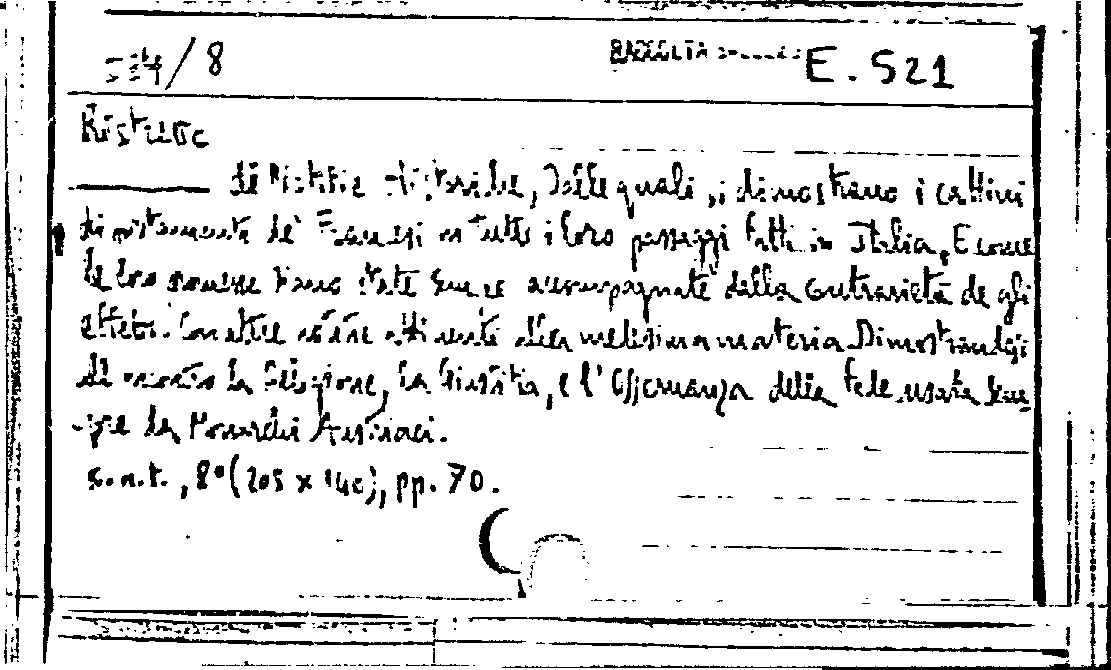 / 8 RACCOLTA E. 521
Ristretto
di Notitie Historiche, Dalle quali si dimostrano i cattivi
di portamenti de' Francesi in tutti i loro passaggi fatti in Italia, E come
le loro mosse siano state sempre accompagnate dalla contrarietà de gli
effetti. Con altre attinenti alla medesima materia Dimostrandosi
la Religione, la Giustitia, e l'Osservanza della fede usata sem-
pre da Monarchi Austriaci.
s.n.t., 8° (205 x 140), pp. 70.